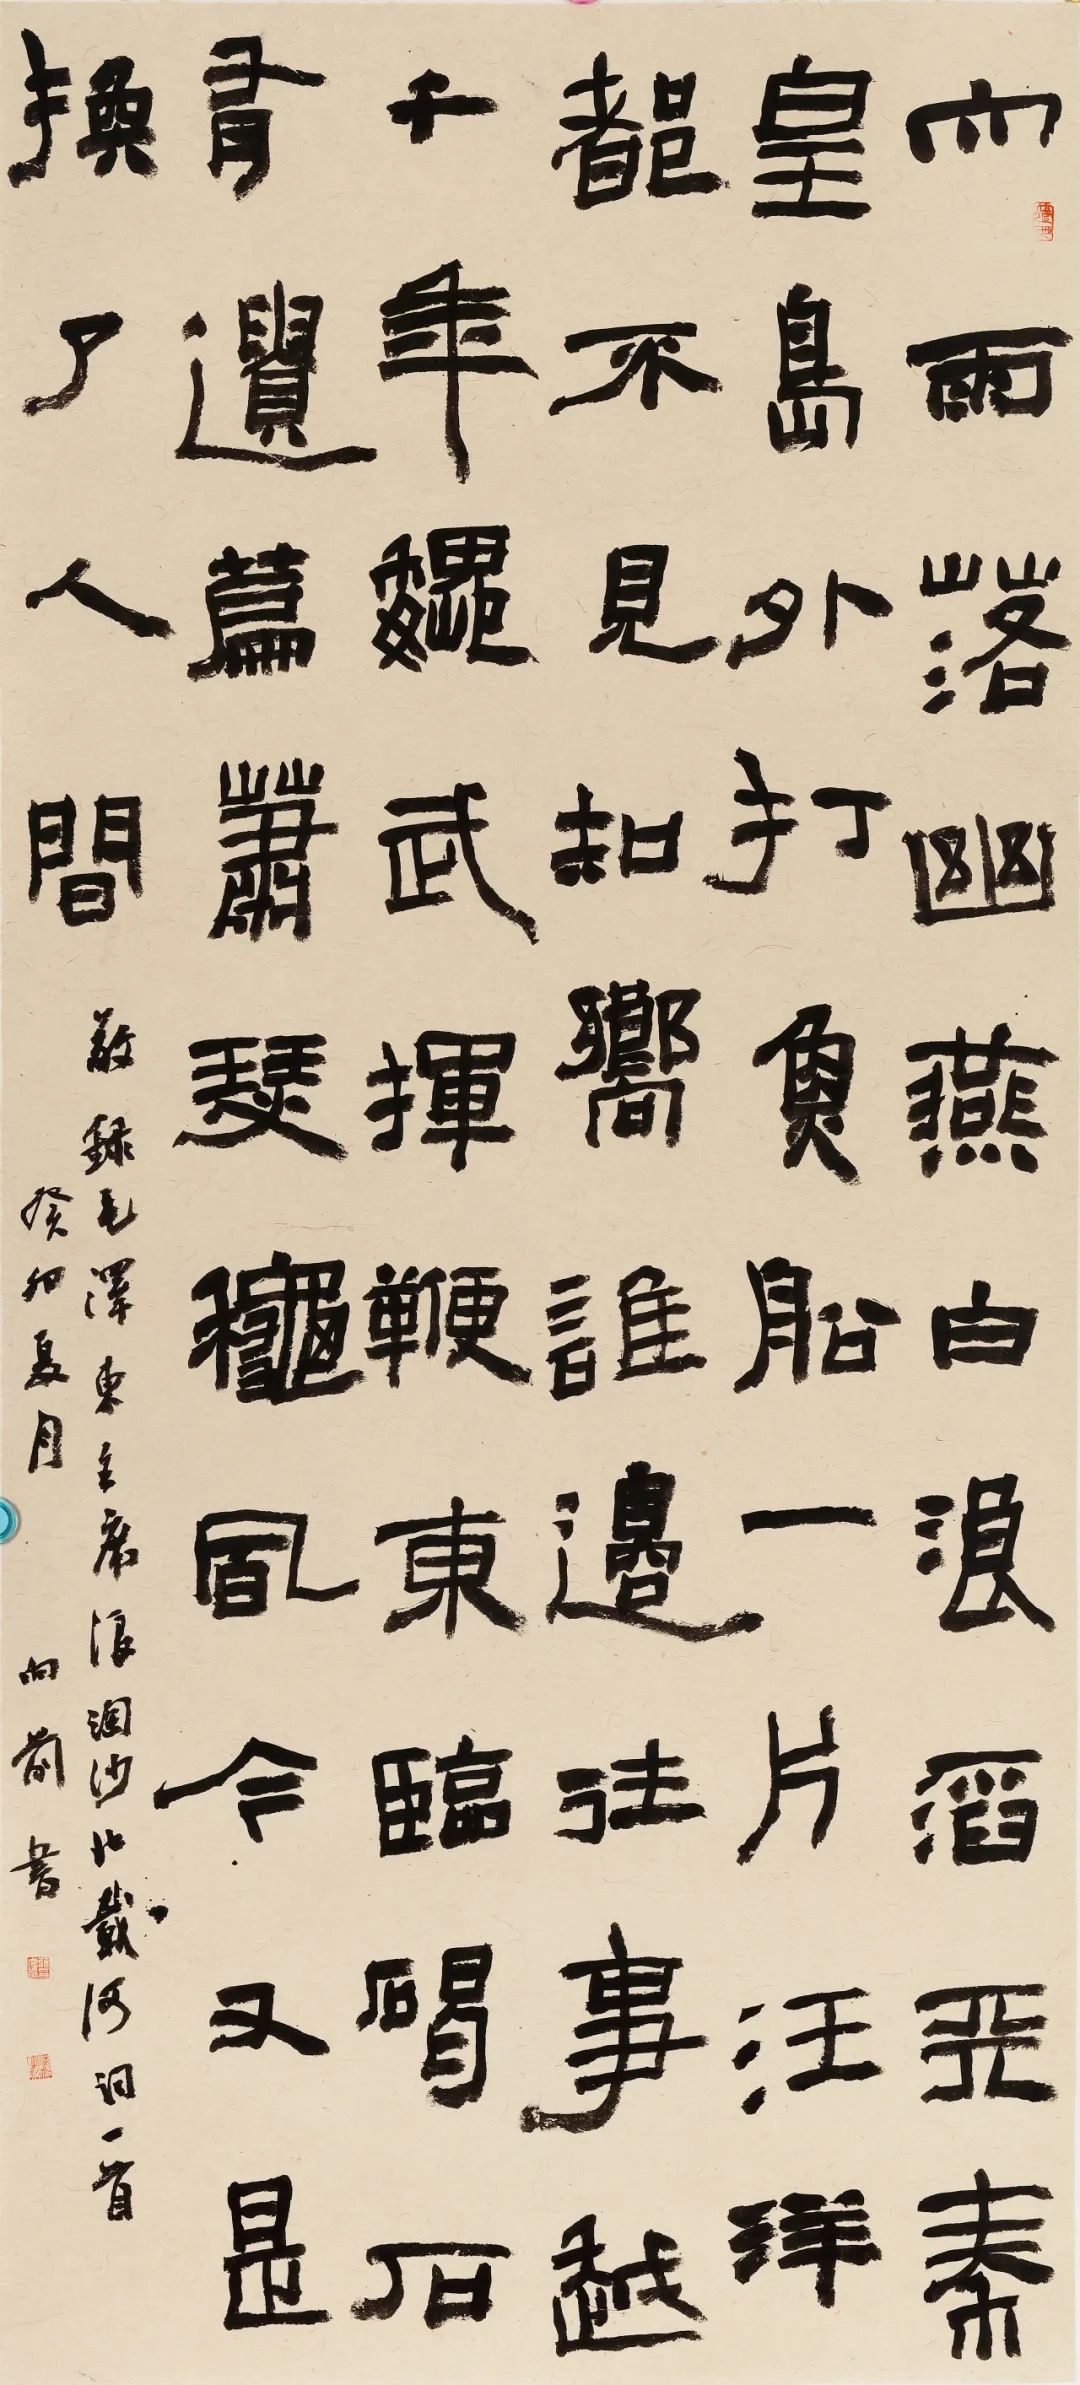 大雨落幽燕白浪滔天秦
皇島外打魚船一片汪洋
都不見知嚮誰邊往事越
千年魏武揮鞭東臨碣石
有遺篇蕭瑟龝風今又是
換了人間
敬録毛澤東主席浪淘沙北戴河詞一首
癸卯夏月向前書